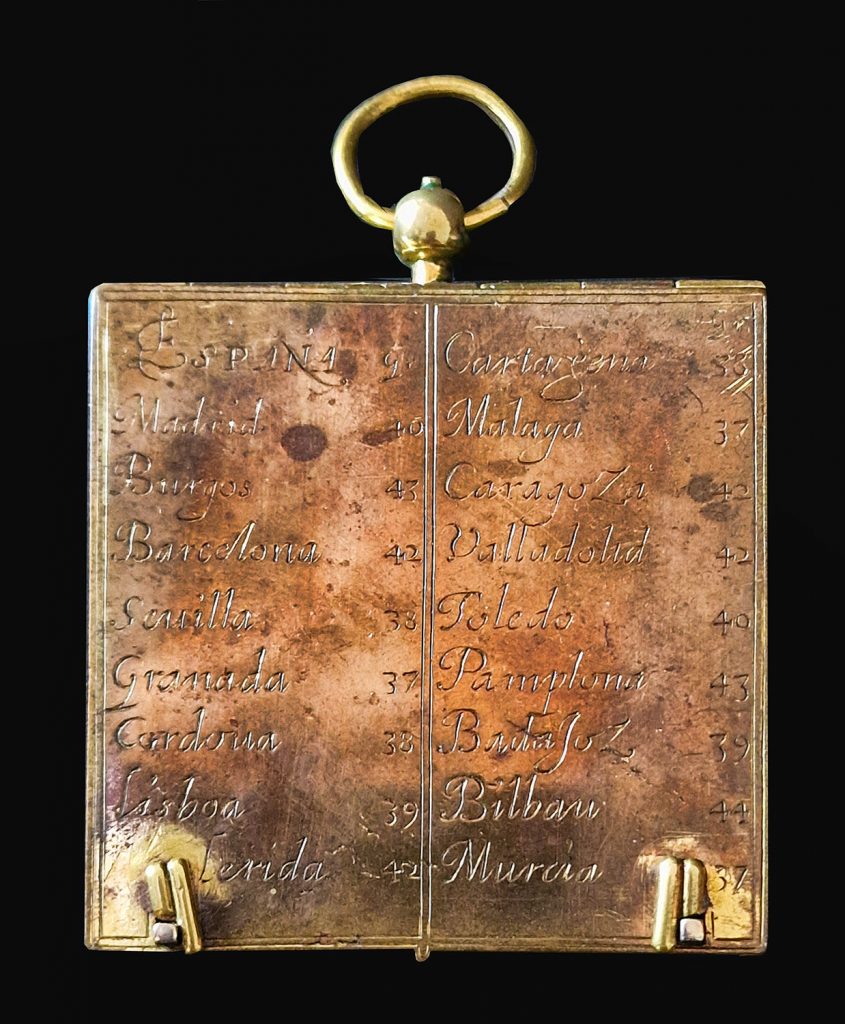 ESPAÑA G.
Madrid 40
Burgos 43
Barcelona 42
Seuilla 38
Granada 37
Cordoua 38
Lisboa 39
Lerida 42
Gr
Cartagena
Malaga 37
CaragoZa 42
Valladolid 42
Toledo 40
Pamplona 43
BadaJoZ 39
Bilbau 44
Murcia 37